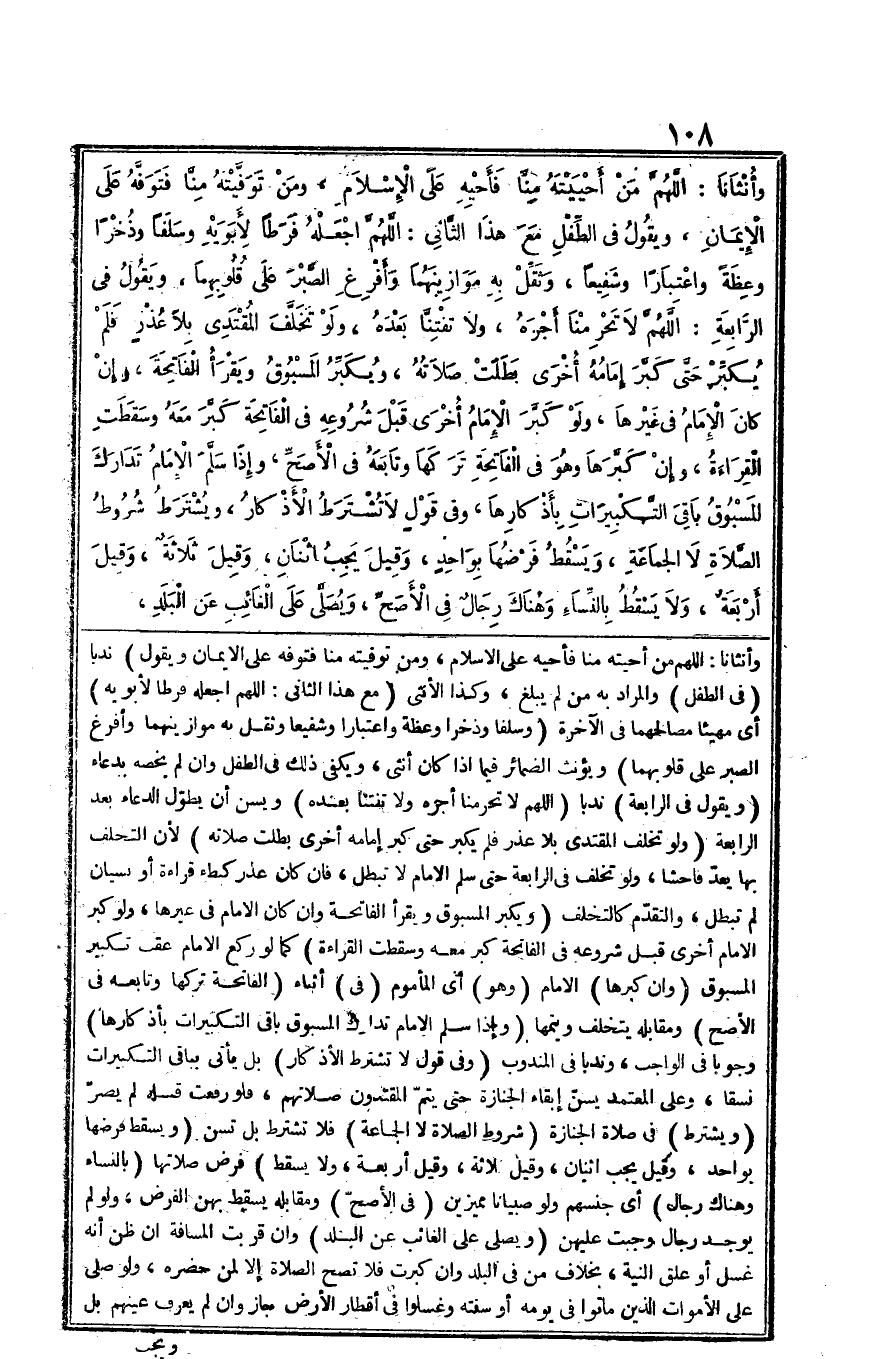 ١٠٨
وأُنْثَانَا : اللَّهُمَّ مَنْ أَحْيَيْتَهُ مِنَّا فَأَحْيِهِ عَلَى الْإِسْلَامِ ، ومَنْ تَوَفَّيْتَهُ مِنَّا فَتَوَفَّهُ عَلَى
الْإِيمَانِ ، ويقُولُ فى الطِّفْلِ مَعَ هذَا الثَّانِى : اللَّهُمَّ اجْعَلْهُ فَرَطًا لِأَبَوَيْهِ وسَلَفًا وذُخْرًا
وعِظَةً واعْتِبَارًا وشَفِيعًا ، وَثَقِّلْ بِهِ مَوَازِينَهُمَا وَأَفْرِغِ الصَّبْرَ عَلَى قُلُوبِهِمَا ، ويَقُولُ فى
الرَّابِعَةِ : اللَّهُمَّ لَا تَحْرِمْنَا أَجْرَهُ ، ولَا تَفْتِنَّا بَعْدَهُ ، ولَوْ تَخَلَّفَ الْمُقْتَدِى بِلَا عُذْرٍ فَلَمْ
يُكَبِّرْ حَتَّى كَبَّرَ إِمَامُهُ أُخْرَى بَطَلَتْ صَلَاتُهُ ، ويُكَبِّرُ الْمَسْبُوقُ وَيَقْرَأُ الْفَاتِحَةَ ، وإِنْ
كانَ الْإِمَامُ فى غَيْرِهَا ، ولَوْ كَبَّرَ الْإِمَامُ أُخْرَى قَبْلَ شُرُوعِهِ فى الْفَاتِحَةِ كَبَّرَ مَعَهُ وسَقَطَتِ
الْقِرَاءَةُ ، وإِنْ كَبَّرَهَا وهُوَ فى الْفَاتِحَةِ تَرَكَهَا وتَابَعَهُ فى الْأَصَحِّ ، وإِذَا سَلَّمَ الْإِمَامُ تَدَارَكَ
الْمَسْبُوقُ بَاقِىَ التَّكْبِيرَاتِ بِأَذْكارِهَا ، وفى قَوْلٍ لَا تُشْتَرَطُ الْأَذْكارُ ، ويُشْتَرَطُ شُرُوطُ
الصَّلَاةِ لَا الجَمَاعَةِ ، وَيَسْقُطُ فَرْضُهَا بِوَاحِدٍ ، وَقِيلَ يَجِبُ اثْنَانِ ، وَقِيلَ ثَلَاثَةٌ ، وَقِيلَ
أَرْبَعَةٌ ، وَلَا يَسْقُطُ بِالنِّسَاءِ وَهُنَاكَ رِجَالٌ فِى الْأَصَحِّ ، وَيُصَلَّى عَلَى الْغَائِبِ عَنِ الْبَلَدِ ،
وأنثانا : اللهم من أحيته منا فأحيه على الاسلام ، ومن توفيته منا فتوفه على الايمان ويقول ) ندبا
( فى الطفل ) والمراد به من لم يبلغ ، وكذا الأنثى ( مع هذا الثانى : اللهم اجعله فرطا لأبويه )
أى مهيئا مصالحهما فى الآخرة ( وسلفا وذخرا وعظة واعتبارا وشفيعا وثقل به موازينهما وأفرغ
الصبر على قلوبهما ) ويؤنث الضمائر فيما اذا كان أنثى ، ويكفى ذلك فى الطفل وان لم يخصه بدعاء
( ويقول فى الرابعة ) ندبا ( اللهم لا تحرمنا أجره ولا تفتنا بعده ) ويسن أن يطوّل الدعاء بعد
الرابعة ( ولو تخلف المقتدى بلا عذر فلم يكبر حتى كبر إمامه أخرى بطلت صلاته ) لأن التخلف
بها يعدّ فاحشا ، ولو تخلف فى الرابعة حتى سلم الامام لا تبطل ، فان كان عذر كبطء قراءة أو نسيان
لم تبطل ، والتقدّم كالتخلف ( ويكبر المسبوق ويقرأ الفاتحة وان كان الامام فى غيرها ، ولو كبر
الامام أخرى قبل شروعه فى الفاتحة كبر معه وسقطت القراءة ) كما لو ركع الامام عقب تكبير
المسبوق ( وان كبرها ) الامام ( وهو ) أى المأموم ( فى ) أثناء ( الفاتحة تركها وتابعه فى
الأصح ) ومقابله يتخلف ويتمها ( وإذا سلم الامام تدارك المسبوق باقى التكبيرات بأذكارها )
وجوبا فى الواجب ، وندبا فى المندوب ( وفى قول لا تشترط الأذكار ) بل يأتى بباقى التكبيرات
نسقا ، وعلى المعتمد يسنّ إبقاء الجنازة حتى يتمّ المقتدون صلاتهم ، فلو رفعت قبله لم يضرّ
( ويشترط ) فى صلاة الجنازة ( شروط الصلاة لا الجماعة ) فلا تشترط بل تسن ( ويسقط فرضها
بواحد ، وقيل يجب اثنان ، وقيل ثلاثة ، وقيل أربعة ، ولا يسقط ) فرض صلاتها ( بالنساء
وهناك رجال ) أى جنسهم ولو صبيانا مميزين ( فى الأصحّ ) ومقابله يسقط بهن الفرض ، ولو لم
يوجد رجال وجبت عليهن ( ويصلى على الغائب عن البلد ) وان قربت المسافة ان ظن أنه
غسل أو علق النية ، بخلاف من فى البلد وان كبرت فلا تصح الصلاة إلا لمن حضره ، ولو صلى
على الأموات الذين ماتوا فى يومه أو سنته وغسلوا فى أقطار الأرض جاز وان لم يعرف عينهم بل
ويجب